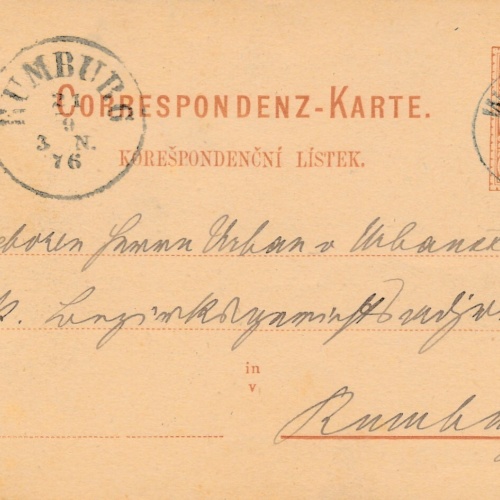 RUMBURG
21
9
3 N.
76
CORRESPONDENZ-KARTE.
KOREŠPONDENČNÍ LÍSTEK.
Herrn Urban v Urban
k. Bezirksgerichtsadj
in
v
Rumb